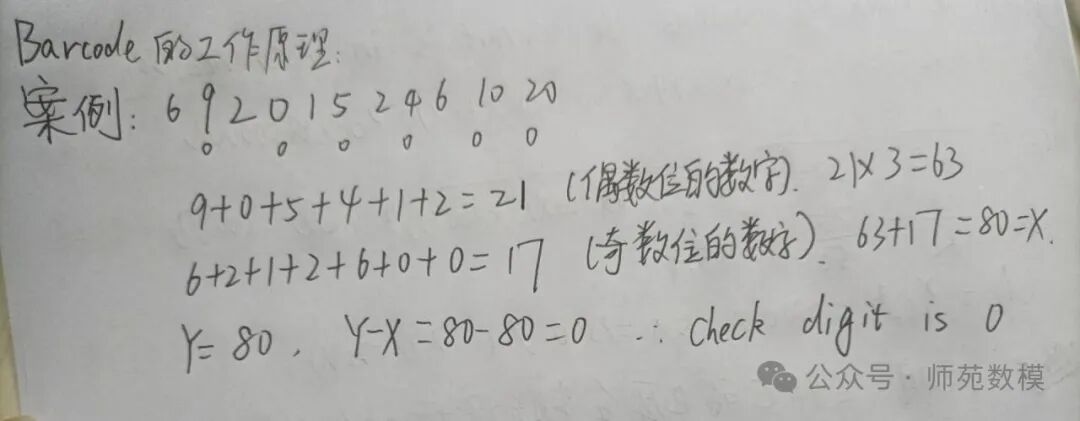 Barcode的工作原理:
案例: 6 9 2 0 1 5 2 4 6 10 20
0 0 0 0 0 0
9+0+5+4+1+2=21 (偶数位的数字). 21×3=63
6+2+1+2+6+0+0=17 (奇数位的数字). 63+17=80=X.
Y=80, Y-X=80-80=0 ∴ Check digit is 0
公众号·师苑数模